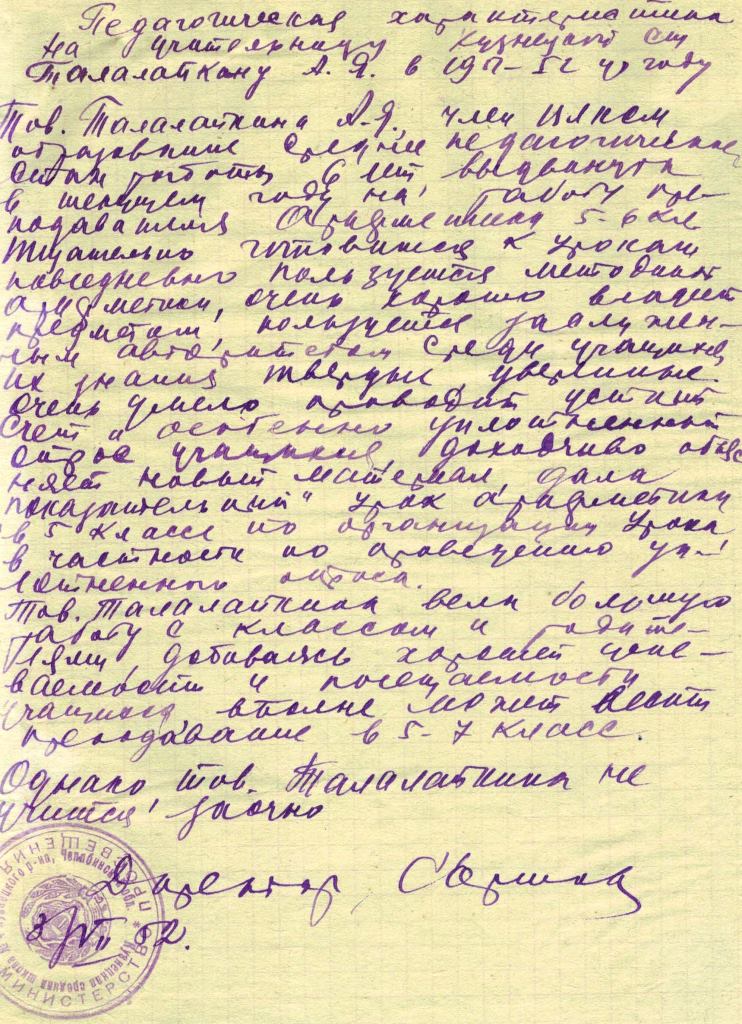 Педагогическая характеристика
на учительницу Кузнецкой СШ
Талалайкину А. Я. в 1951-52 уч году
Тов. Талалайкина А.Я., член ВЛКСМ
образование среднее педагогическое
стаж работы 6 лет выдвинута
в текущем году на работу пре-
подавателя Арифметики 5-6 кл
Тщательно готовится к урокам
повседневно пользуется методикой
арифметики, очень хорошо владеет
предметом, пользуется заслужен-
ным авторитетом среди учащихся
их знания твердые, уверенные.
Очень умело проводит устный
счет и особенно уплотненный
опрос учащихся, доходчиво объяс
няет новый материал, дала
"показательный" урок арифметики
в 5 классе по организации урока
в частности по проведению уп-
лотненного опроса.
Тов. Талалайкина вела большую
работу с классом и родите-
лями, добиваясь хорошей успе-
ваемости и посещаемости
учащихся вполне может вести
преподавание в 5-7 класс.
Однако тов. Талалайкина не
учится заочно
Директор
3/VII 52.
МИНИСТЕРСТВО ПРОСВЕЩЕНИЯ
Кузнецкая средняя школа Кузнецкого р-на, Челябинской обл.